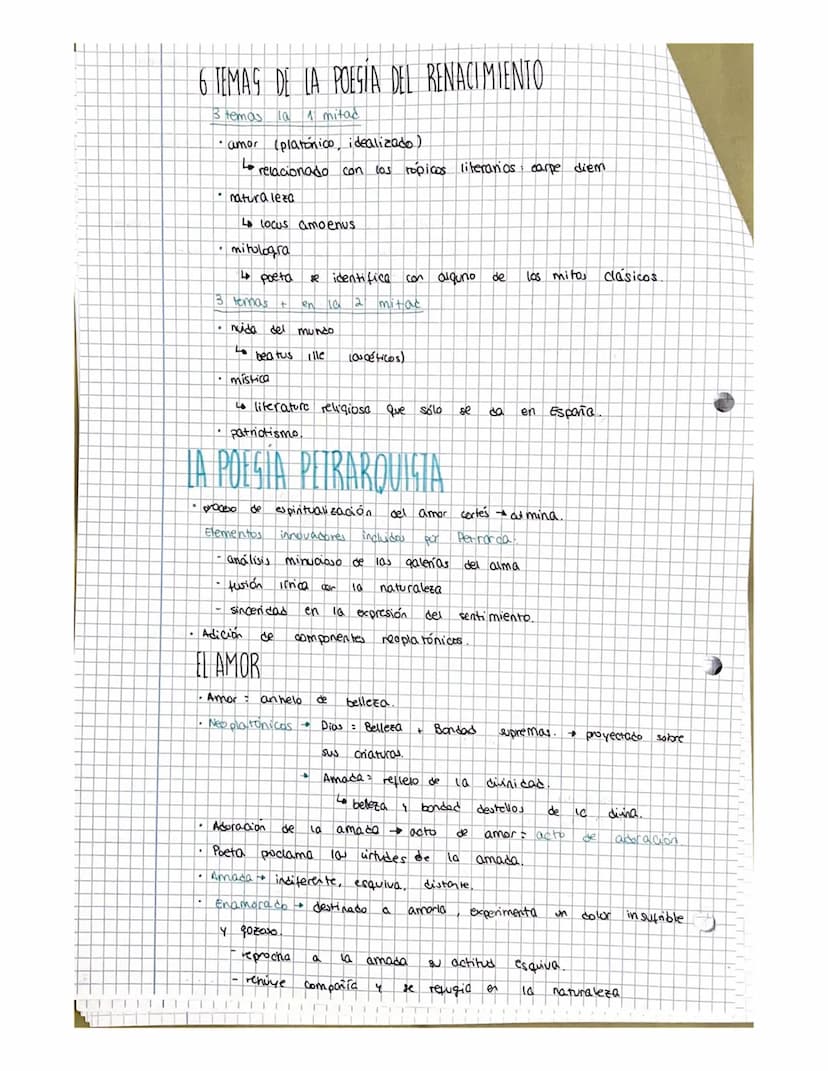 6 TEMAS DE LA POESÍA DEL RENACIMIENTO
3 temas la 1ª mitad
· amor (platónico, idealizado)
↳ relacionado con los tópicos literarios: carpe diem
· naturaleza
↳ locus amoenus
· mitología
↳ poeta se identifica con alguno de los mitos clásicos.
3 temas + en la 2ª mitad
· huida del mundo
↳ beatus ille (ascéticos)
· mística
↳ literatura religiosa que sólo se da en España.
· patriotismo.
LA POESÍA PETRARQUISTA
· proceso de espiritualización del amor cortés → culmina.
Elementos innovadores incluidos por Petrarca.
- análisis minucioso de las galerías del alma
- fusión lírica con la naturaleza
- sinceridad en la expresión del sentimiento.
· Adición de componentes neoplatónicos.
EL AMOR
· Amor: anhelo de belleza.
· Neoplatónicos → Dios = Belleza + Bondad supremas. → proyectado sobre
sus criaturas.
→ Amada = reflejo de la divinidad.
↳ belleza y bondad destellos de la divina.
· Adoración de la amada → acto de amor = acto de adoración.
· Poeta proclama las virtudes de la amada.
· Amada → indiferente, esquiva, distante.
· Enamorado → destinado a amarla, experimenta un dolor insufrible
y gozoso.
- reprocha a la amada su actitud esquiva.
- rehúye compañía y se refugia en la naturaleza